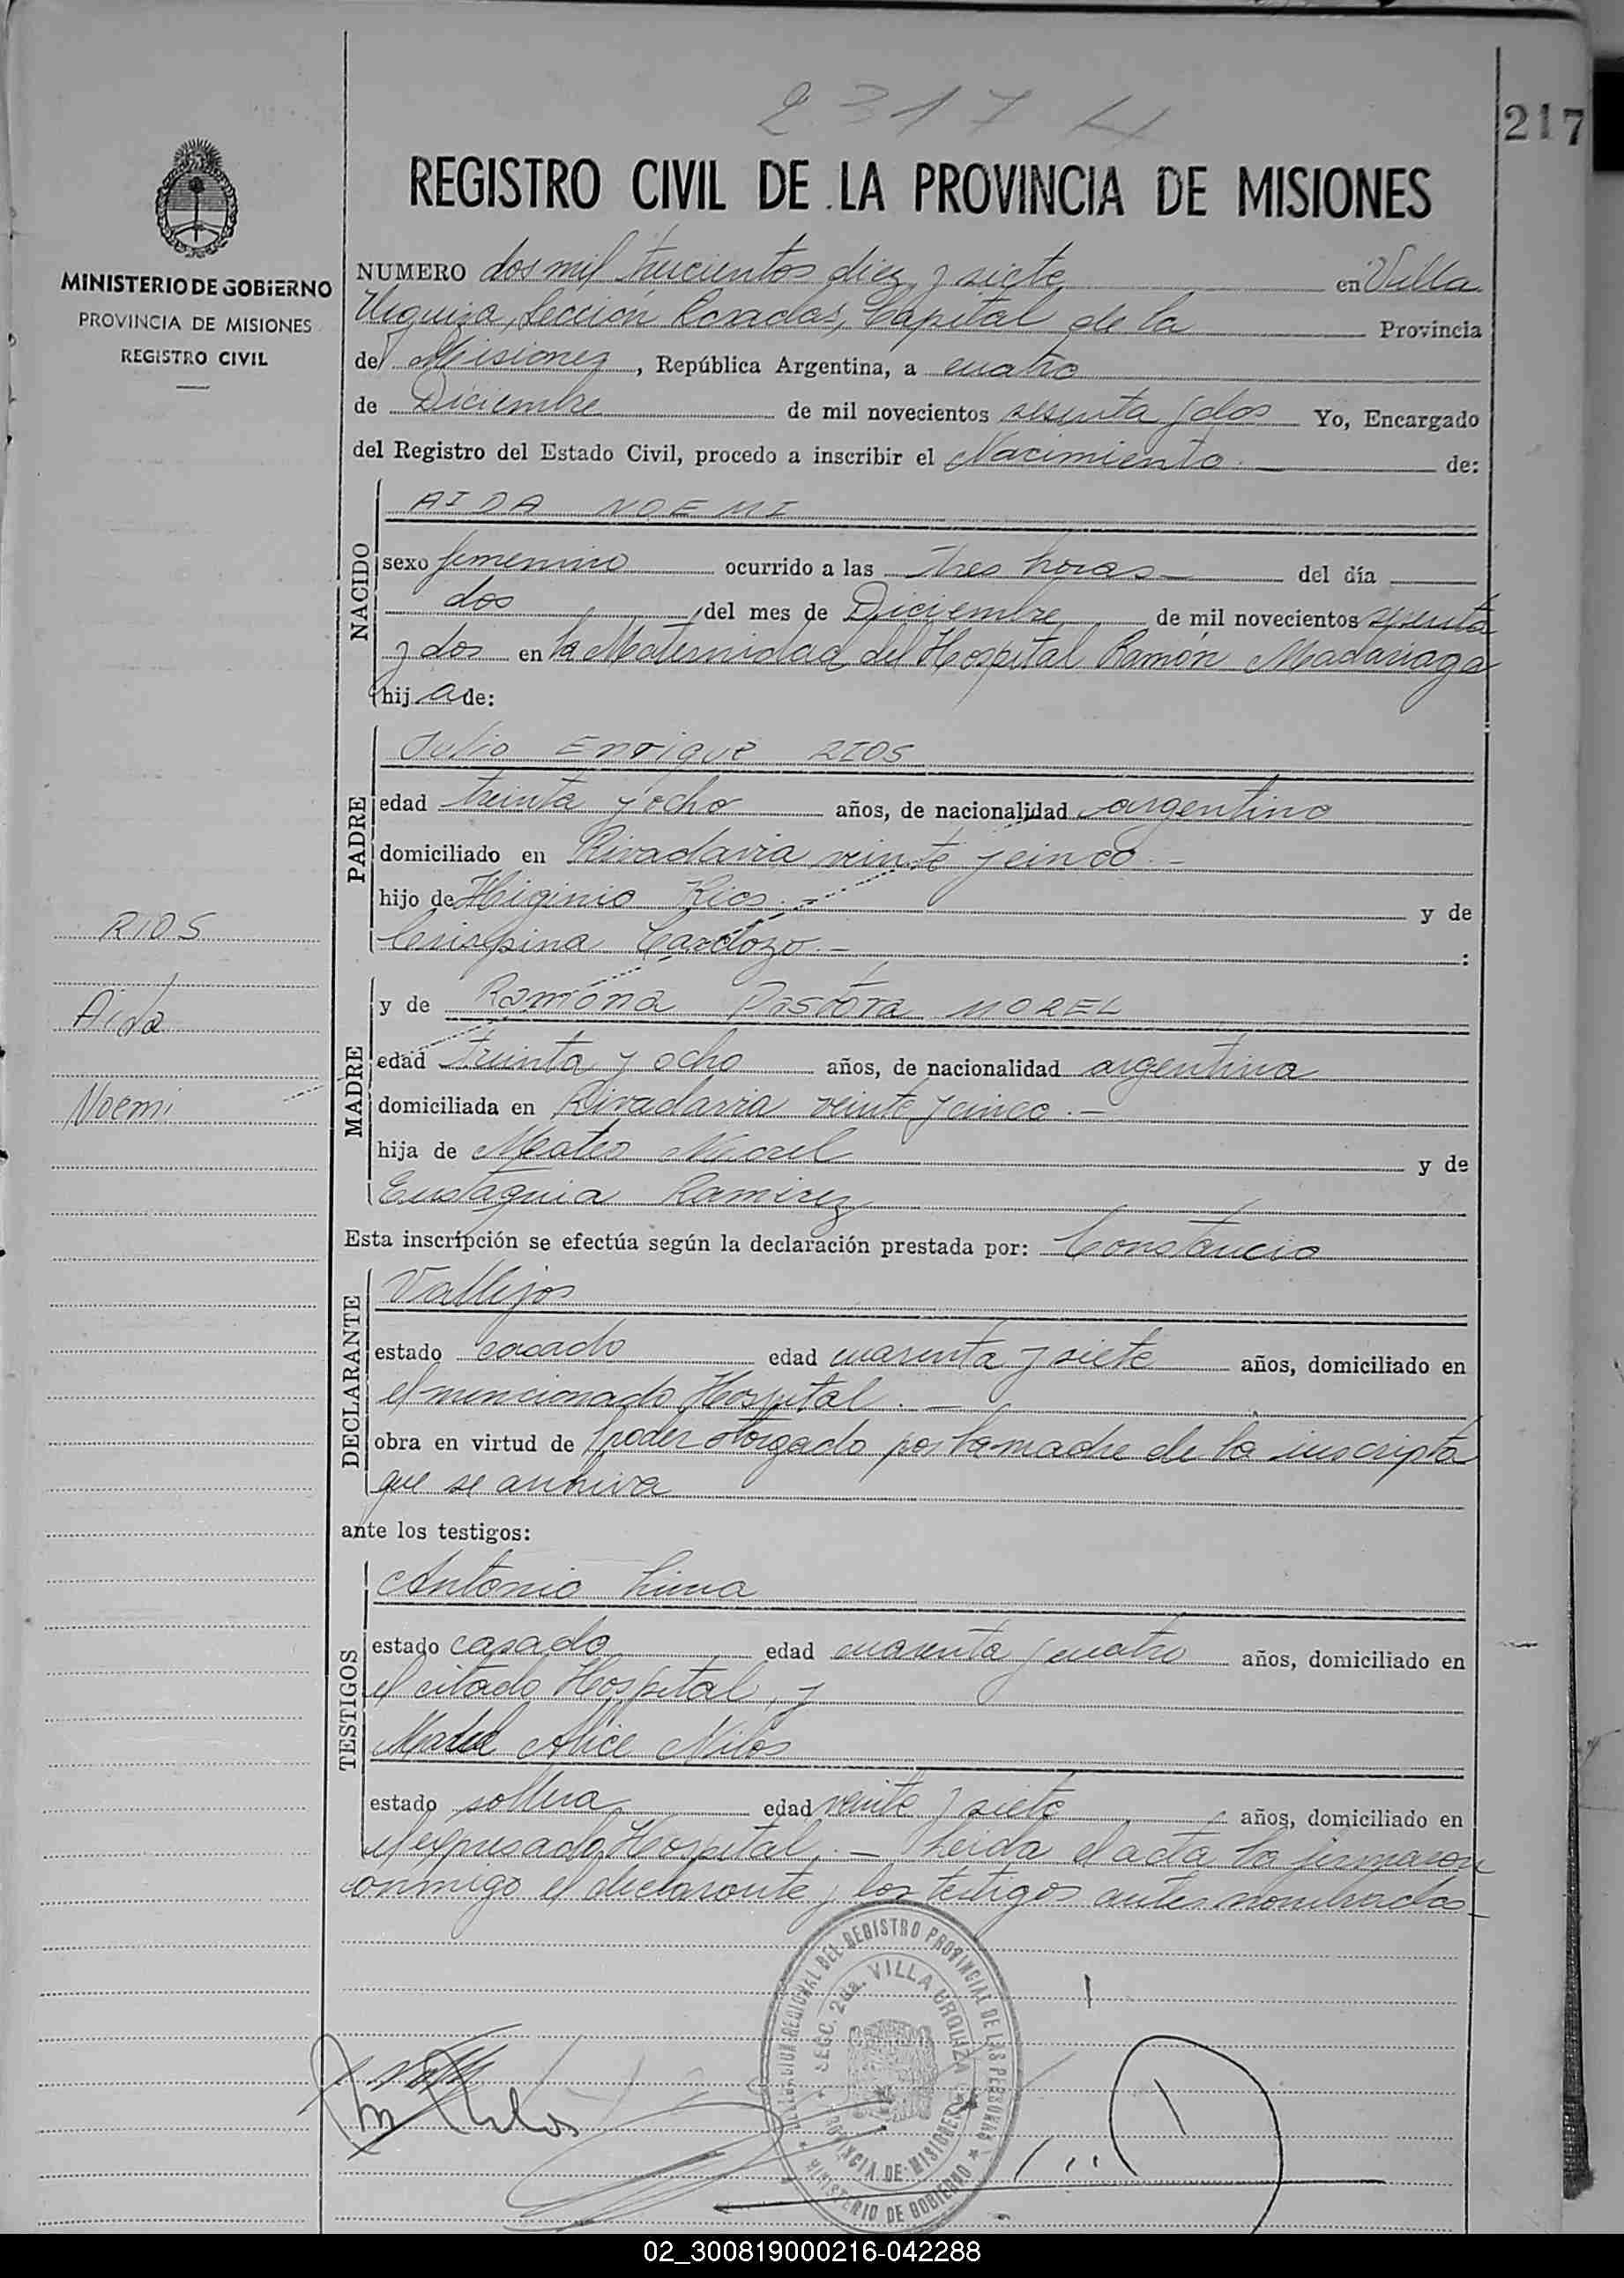 2317 H
217
REGISTRO CIVIL DE LA PROVINCIA DE MISIONES
MINISTERIO DE GOBIERNO
PROVINCIA DE MISIONES
REGISTRO CIVIL
NUMERO dos mil trescientos diez y siete en Villa
Urquiza, Sección Posadas, Capital de la Provincia
de Misiones, República Argentina, a cuatro
de Diciembre de mil novecientos sesenta y dos Yo, Encargado
del Registro del Estado Civil, procedo a inscribir el Nacimiento.— de:
NACIDO
AIDA NOEMI
sexo femenino ocurrido a las tres horas— del día
dos del mes de Diciembre de mil novecientos sesenta
y dos en la Maternidad del Hospital Ramón Madariaga
hija de:
PADRE
Julio Enrique RIOS
edad treinta y ocho años, de nacionalidad argentino
domiciliado en Rivadavia veinte y cinco.—
hijo de Higinio Rios.— y de
Crispina Cardozo.— :
RIOS
Aida
Noemi
MADRE
y de Ramóna Pastóra MOREL
edad treinta y ocho años, de nacionalidad argentina
domiciliada en Rivadavia veinte y cinco.—
hija de Mateo Morel y de
Eustaquia Ramirez
Esta inscripción se efectúa según la declaración prestada por: Constancio
DECLARANTE
Vallejos
estado casado edad cuarenta y siete años, domiciliado en
el mencionado Hospital.—
obra en virtud de poder otorgado por la madre de la inscripta
que se archiva
ante los testigos:
TESTIGOS
Antonio Luna
estado casado edad cuarenta y cuatro años, domiciliado en
el citado Hospital, y
Alice Nilos
estado soltera edad veinte y siete años, domiciliado en
el expresado Hospital.— Leida el acta la firmaron
conmigo el declarante y los testigos antes nombrados—
DELEGACION REGIONAL DEL REGISTRO PROVINCIAL DE LAS PERSONAS
SECC. 2da. VILLA URQUIZA
PROVINCIA DE MISIONES
MINISTERIO DE GOBIERNO
02_300819000216-042288